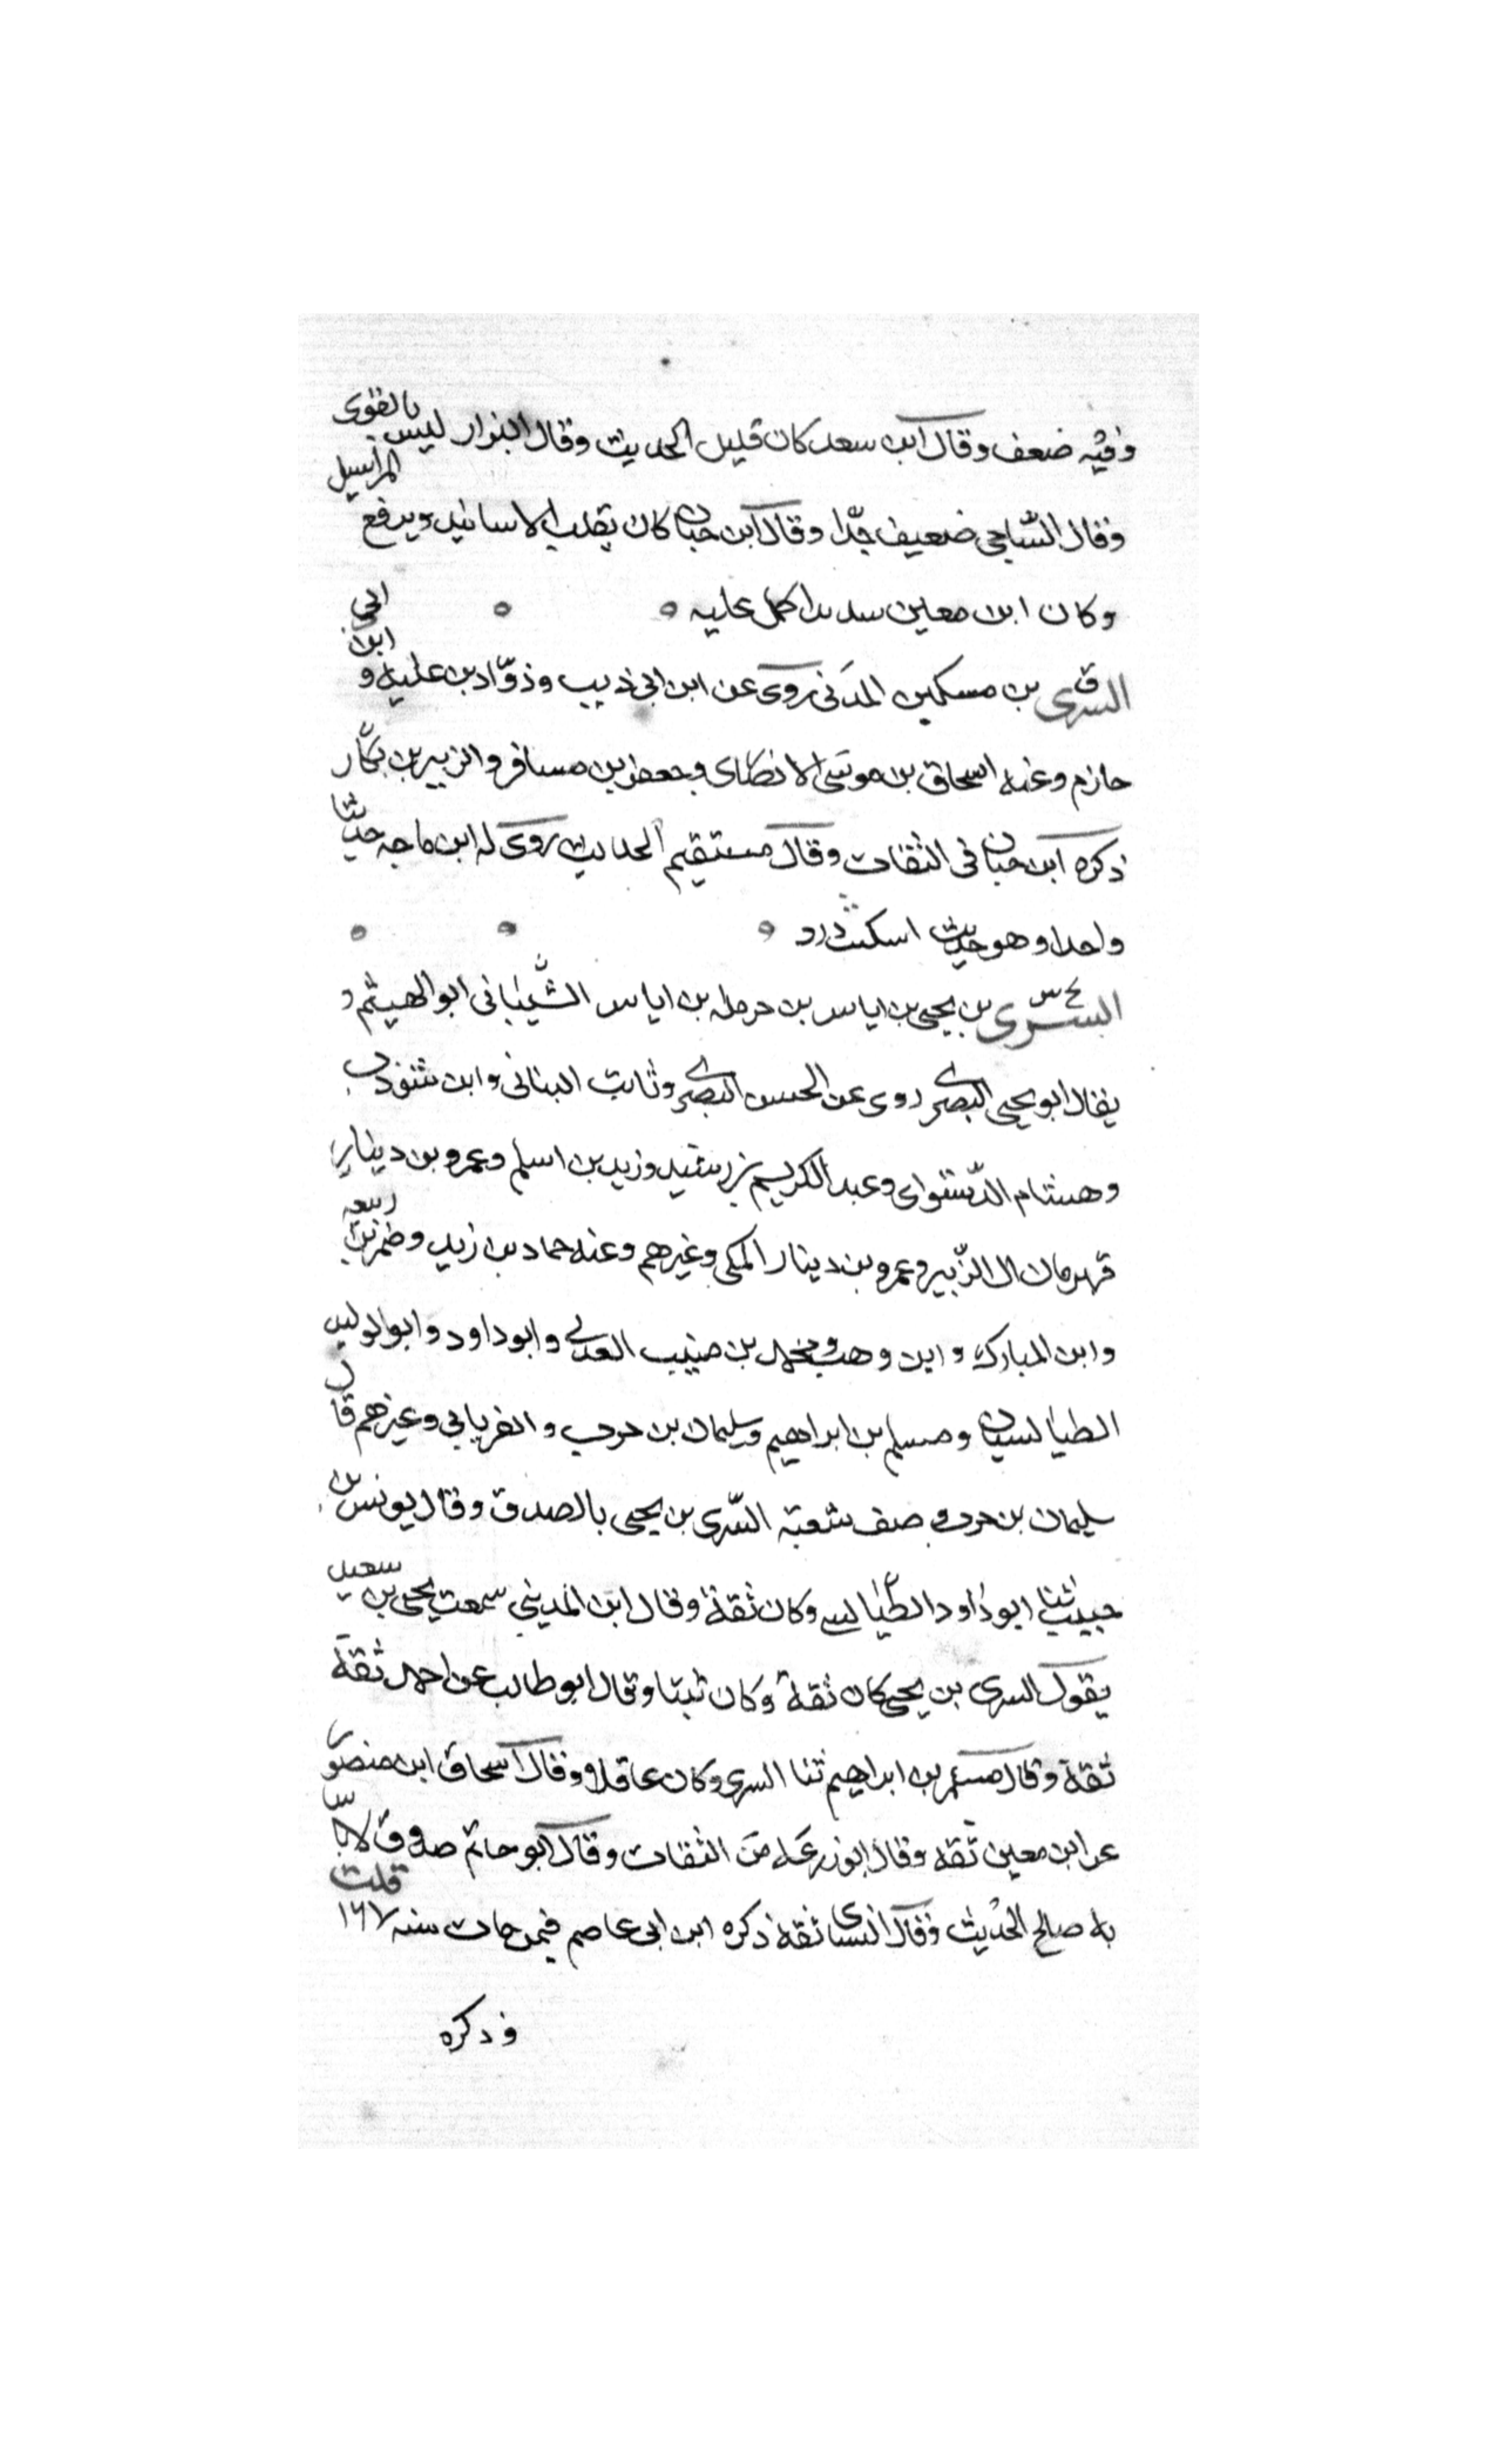 وفيه ضعف وقال ابن سعد كان قليل الحديث وقال البزار ليس بالقوى
وقال الساجى ضعيف جدّا وقال ابن حبان كان يقلب الاسانيد ويرفع المراسيل
وكان ابن معين شديد الحمل عليه
السرى بن مسكين المدنى روى عن ابن ابى ذيب وذوّاد بن علبه و ابن ابي
حازم وعنه اسحاق بن موسى الانصارى وجعفر بن مسافر والزبير بن بكّار
ذكره ابن حبان فى الثقات وقال مستقيم الحديث روى له ابن ماجه حديثا
واحدا وهو حديث اشكنب درد
السرى بن يحيى بن اياس بن حرمله بن اياس الشّيبانى ابو الهيثم و
يقال ابو يحيى البصرى روى عن الحسن البصرى وثابت البنانى وابن شوذب
وهشام الدّستواى وعبد الكريم بن رشيد وزيد بن اسلم وعمرو بن دينار
قهرمان ال الزّبير وعمرو بن دينار المكى وغيرهم وعنه حماد بن زيد وضمرة بن ربيعه
وابن المبارك وابن وهب ومحمد بن منيب العدنى وابو داود وابو الوليد
الطيالسيان ومسلم بن ابراهيم وسليمان بن حرب والفريابى وغيرهم قال
سليمان بن حرب وصف شعبة السّرى بن يحيى بالصدق وقال يونس بن
حبيب ثنا ابو داود الطّيالسى وكان ثقة وقال ابن المدينى سمعت يحيى بن سعيد
يقول السرى بن يحيى كان ثقة وكان ثبتا وقال ابو طالب عن احمد ثقة
ثقة وقال مسلم بن ابراهيم ثنا السرى وكان عاقلا وقال اسحاق ابن منصور
عن ابن معين ثقه وقال ابو زرعه من الثقات وقال ابو حاتم صدوق لا باس
به صالح الحديث وقال النساى ثقة ذكره ابن ابى عاصم فيمن مات سنه ١٦٧ قلت
وذكره